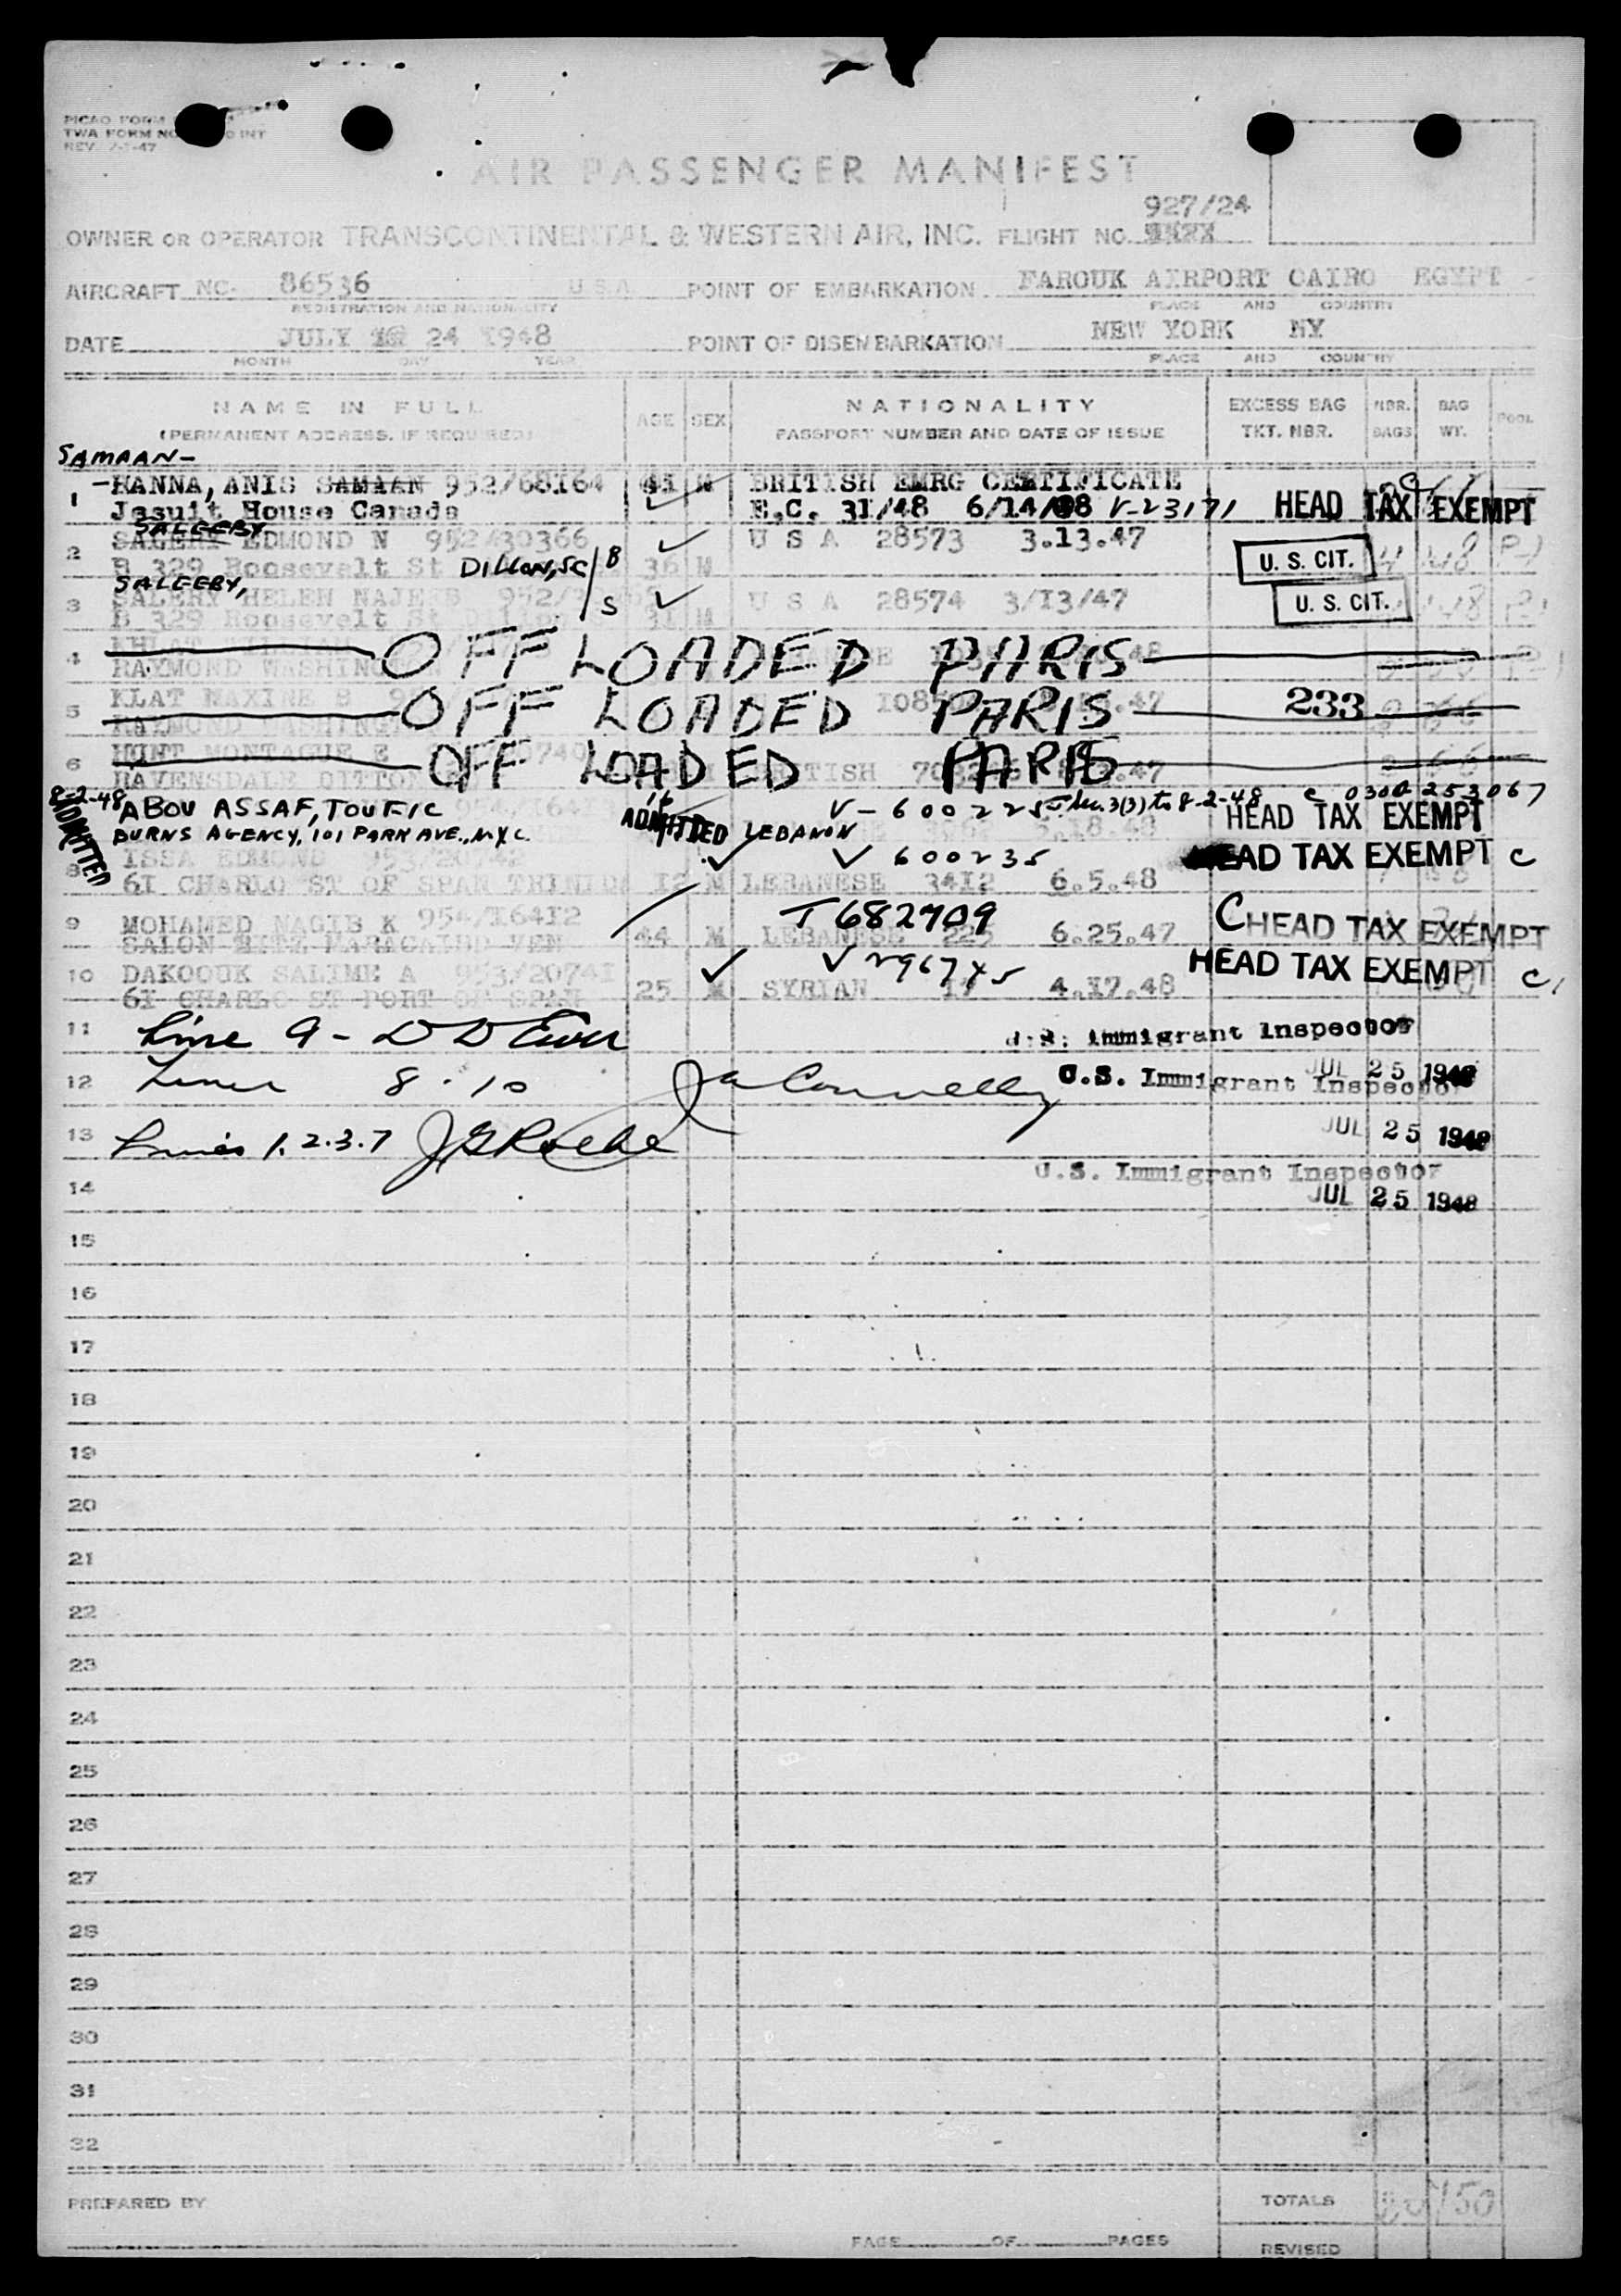 PICAO FORM
TWA FORM NO INT
REV. 7-1-47
AIR PASSENGER MANIFEST
927/24
OWNER OR OPERATOR TRANSCONTINENTAL & WESTERN AIR, INC. FLIGHT NO.
AIRCRAFT NC- 86536 U S A POINT OF EMBARKATION FAROUK AIRPORT CAIRO EGYPT
REGISTRATION AND NATIONALITY PLACE AND COUNTRY
DATE JULY 24 1948 POINT OF DISEMBARKATION NEW YORK NY
MONTH DAY YEAR PLACE AND COUNTRY
NAME IN FULL AGE SEX NATIONALITY EXCESS BAG NBR. BAG POOL
(PERMANENT ADDRESS, IF REQUIRED) PASSPORT NUMBER AND DATE OF ISSUE TKT. NBR. BAGS WT.
SAMAAN-
1 -HANNA, ANIS SAMAAN 952/68164 44 M BRITISH EMRG CERTIFICATE
Jesuit House Canada E.C. 31/48 6/14/48 V-23171 HEAD TAX EXEMPT
SALEEBY
2 SALEBY EDMOND N 952/30366 U S A 28573 3.13.47
B 329 Roosevelt St DILLON, SC B 36 M U. S. CIT. 4 148 P-1
SALEEBY,
3 SALEBY HELEN NAJEEB 952/ S U S A 28574 3/13/47 U. S. CIT.
B 329 Roosevelt St 31 M
4 OFF LOADED PARIS
RAYMOND WASHINGTON
KLAT MAXINE B
5 OFF LOADED PARIS 233
RAYMOND WASHINGTON
6 MONTAGUE E OFF LOADED PARIS
RAVENSDALE DITTON BRITISH
8-2-48 ABOU ASSAF, TOUFIC V-600225 Sec. 3(3) to 8-2-48 C 0300 253067
ADMITTED BURNS AGENCY, 101 PARK AVE., N.Y.C. ADMITTED LEBANON HEAD TAX EXEMPT
8 ISSA EDMOND 953/20742 V 600235 HEAD TAX EXEMPT C
61 CHARLO ST OF SPAN TRINID 12 M LEBANESE 3412 6.5.48
9 MOHAMED NAGIB K 954/16412 T 682709 C HEAD TAX EXEMPT
SALON RITZ MARACAIBO VEN 44 M LEBANESE 225 6.25.47
10 DAKOOUK SALIME A 953/20741 V 296745 HEAD TAX EXEMPT C
61 CHARLO ST PORT OF SPAN 25 M SYRIAN 17 4.17.48
11 Line 9 - U.S. Immigrant Inspector
JUL 25 1948
12 Lines 8 - 10 J A Connelly U.S. Immigrant Inspector
13 Lines 1.2.3.7 J G Roche JUL 25 1948
U.S. Immigrant Inspector
14 JUL 25 1948
15
16
17
18
19
20
21
22
23
24
25
26
27
28
29
30
31
32
PREPARED BY TOTALS 20 750
PAGE OF PAGES REVISED